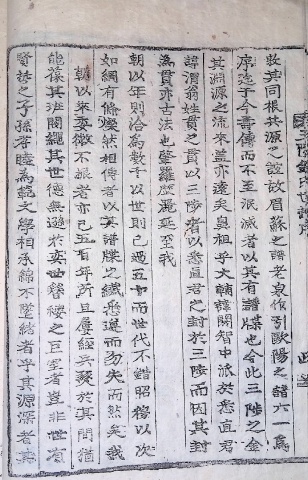 故其同根共源之誼故眉蘇之譜老泉作引歐陽之譜六一爲
序迄于今壽傳而不至泯滅者以其有譜牒也今此三陟之金
其淵源之流來盖亦遠矣鼻祖乎大輔諱閼智中派於悉直君
諱渭翁姓貫之貫以三陟者以悉直君之封於三陟而因其封
爲貫亦古法也肇羅歷麗延至我
朝以年則洽爲數千以世則已過五十而世代不錯昭穆以次
如網有條燦然相傳者以其譜牒之纖悉遺而勿失而然矣我
朝以來委微不振者亦已五百年所且屢經兵燹於其間猶
能葆其班閥繩其世德無遜於奕世簪纓之巨室者豈非世有
賢喆之子孫者睦爲範文學相承綿不墜緒者乎其源深者其